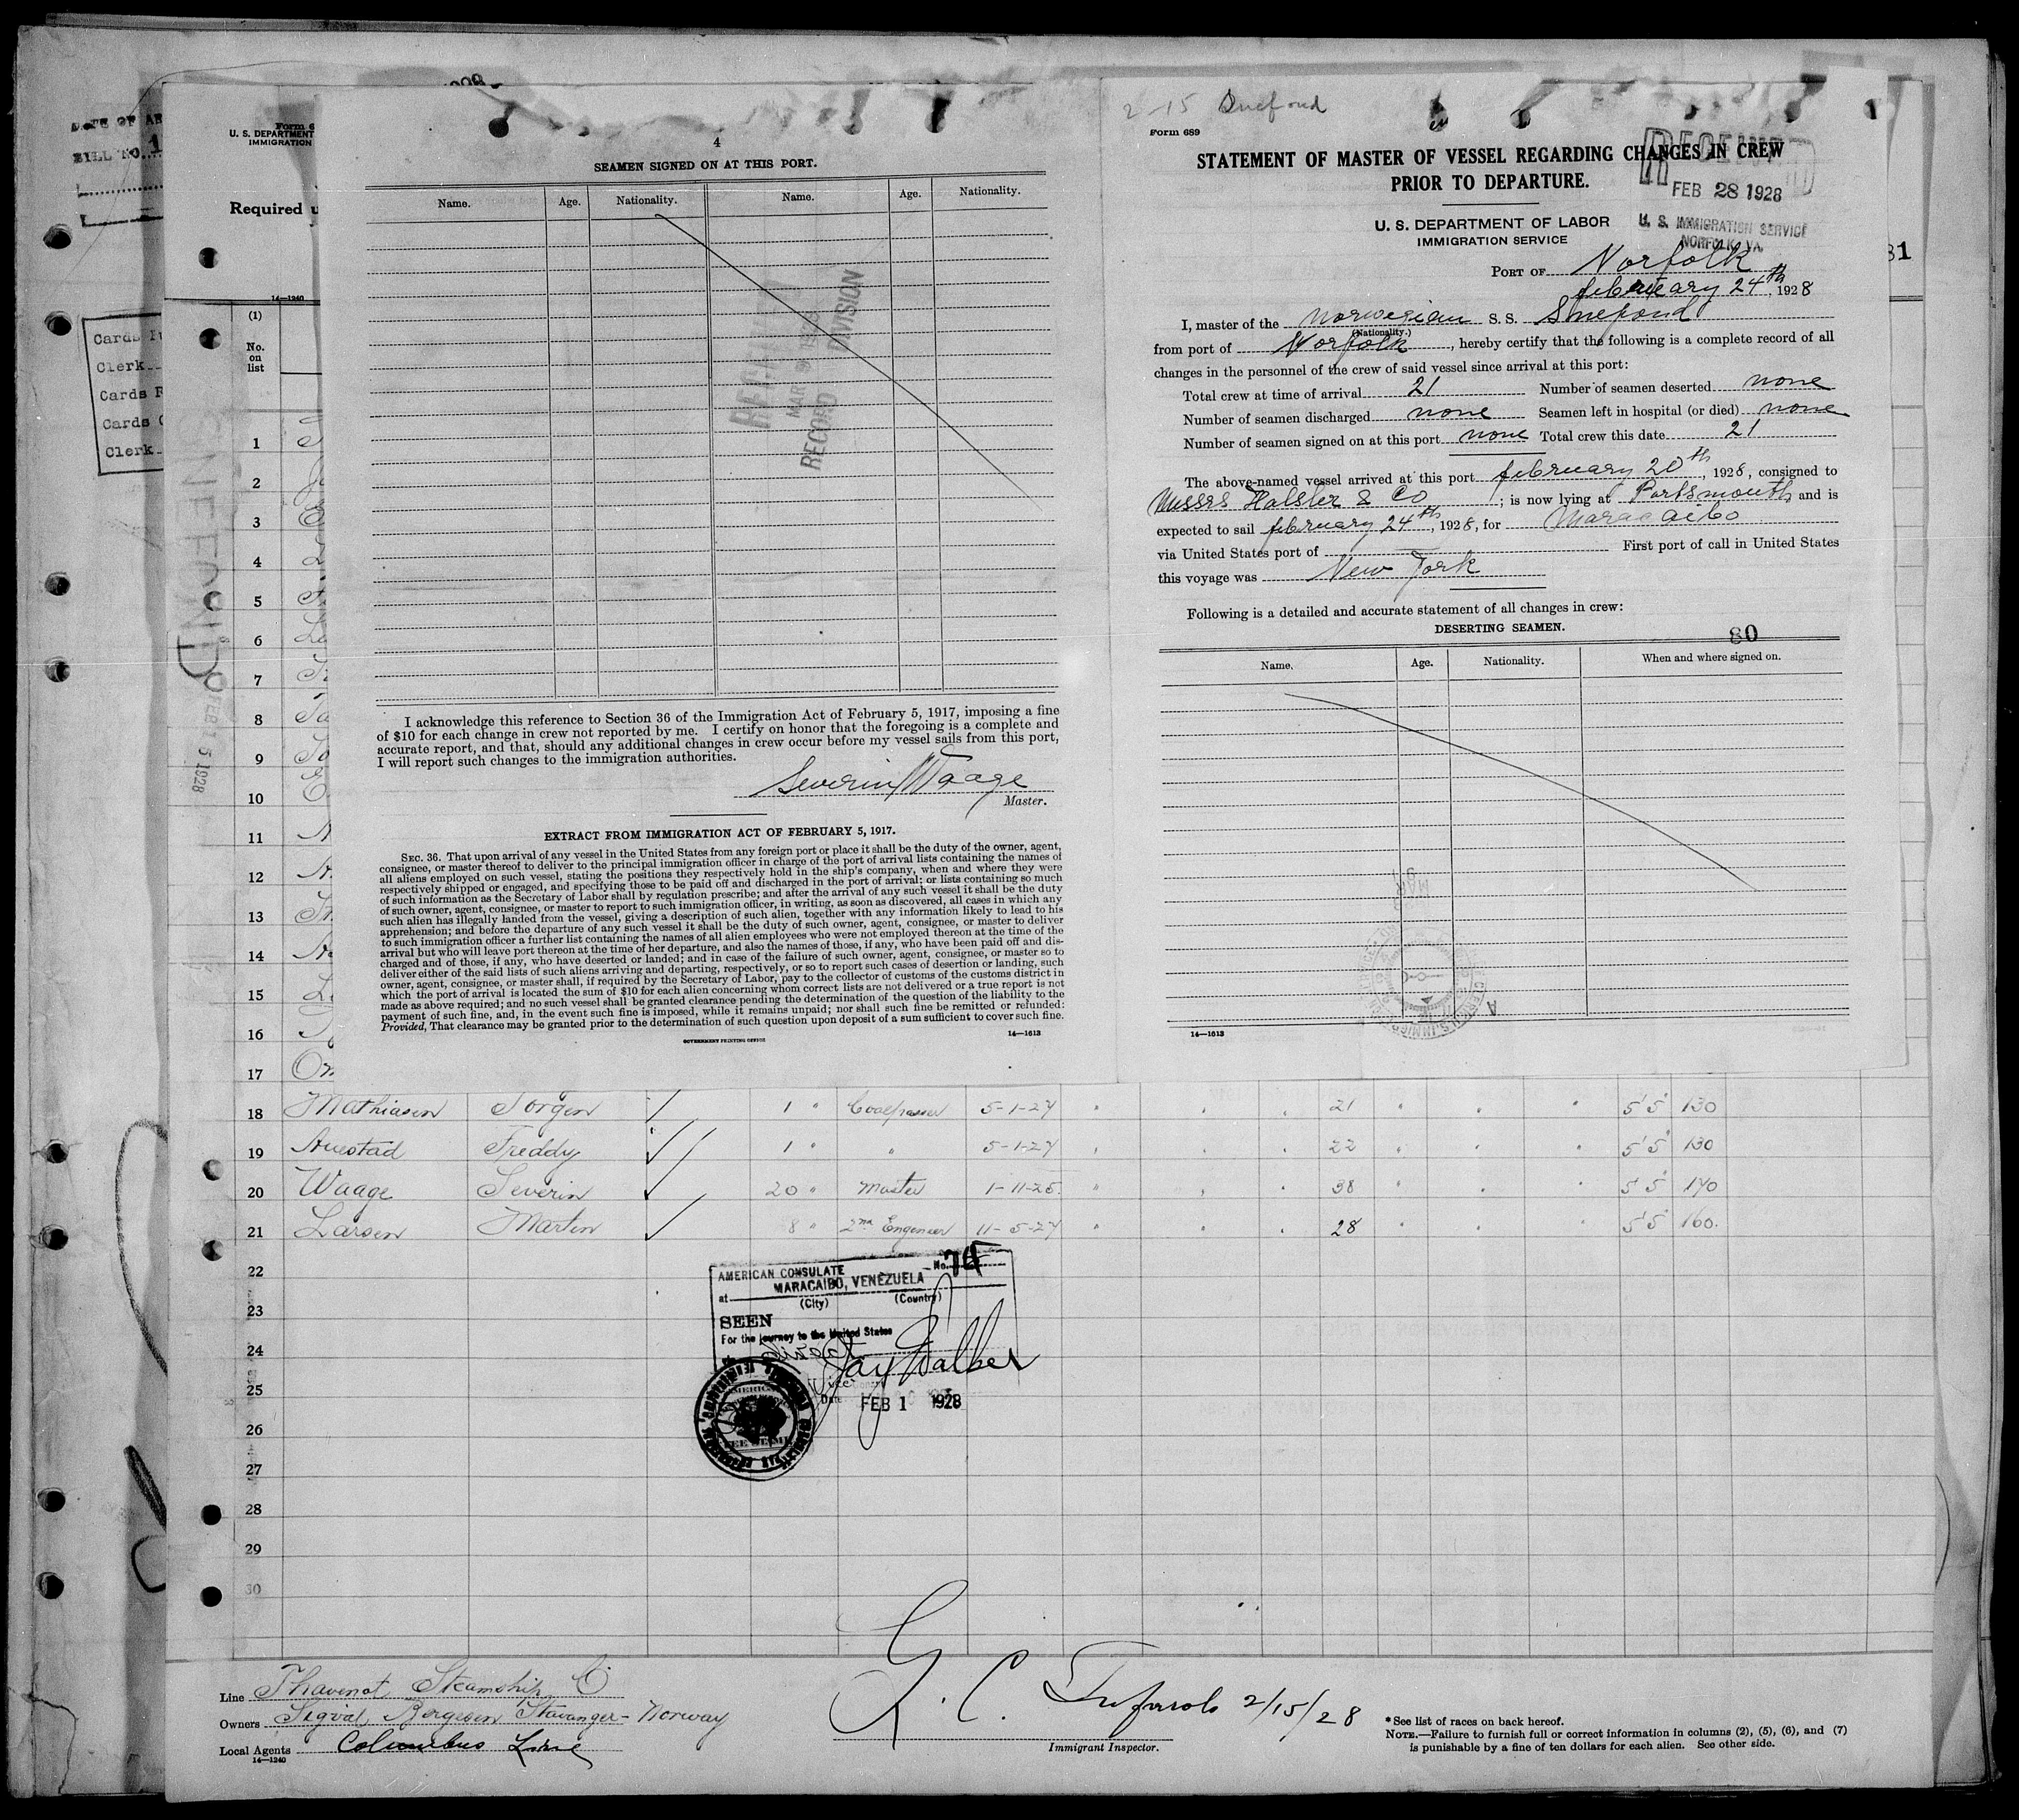 DATE OF AR
BILL NO. 1
Cards Pu
Clerk
Cards P
Cards C
Clerk
Form 6
U. S. DEPARTMENT
IMMIGRATION
Required u
14—1240
(1)
No.
on
list
SNEFOND
FEB 15 1928
4
SEAMEN SIGNED ON AT THIS PORT.
Name. Age. Nationality. Name. Age. Nationality.
MAR 9 1928
RECORD DIVISION
I acknowledge this reference to Section 36 of the Immigration Act of February 5, 1917, imposing a fine
of $10 for each change in crew not reported by me. I certify on honor that the foregoing is a complete and
accurate report, and that, should any additional changes in crew occur before my vessel sails from this port,
I will report such changes to the immigration authorities.
Severin Waage
Master.
EXTRACT FROM IMMIGRATION ACT OF FEBRUARY 5, 1917.
SEC. 36. That upon arrival of any vessel in the United States from any foreign port or place it shall be the duty of the owner, agent,
consignee, or master thereof to deliver to the principal immigration officer in charge of the port of arrival lists containing the names of
all aliens employed on such vessel, stating the positions they respectively hold in the ship's company, when and where they were
respectively shipped or engaged, and specifying those to be paid off and discharged in the port of arrival: or lists containing so much
of such information as the Secretary of Labor shall by regulation prescribe; and after the arrival of any such vessel it shall be the duty
of such owner, agent, consignee, or master to report to such immigration officer, in writing, as soon as discovered, all cases in which any
such alien has illegally landed from the vessel, giving a description of such alien, together with any information likely to lead to his
apprehension; and before the departure of any such vessel it shall be the duty of such owner, agent, consignee, or master to deliver
to such immigration officer a further list containing the names of all alien employees who were not employed thereon at the time of the
arrival but who will leave port thereon at the time of her departure, and also the names of those, if any, who have been paid off and dis-
charged and of those, if any, who have deserted or landed; and in case of the failure of such owner, agent, consignee, or master so to
deliver either of the said lists of such aliens arriving and departing, respectively, or so to report such cases of desertion or landing, such
owner, agent, consignee, or master shall, if required by the Secretary of Labor, pay to the collector of customs of the customs district in
which the port of arrival is located the sum of $10 for each alien concerning whom correct lists are not delivered or a true report is not
made as above required; and no such vessel shall be granted clearance pending the determination of the question of the liability to the
payment of such fine, and, in the event such fine is imposed, while it remains unpaid; nor shall such fine be remitted or refunded:
Provided, That clearance may be granted prior to the determination of such question upon deposit of a sum sufficient to cover such fine.
GOVERNMENT PRINTING OFFICE 14—1613
2-15 Snefond
Form 689
STATEMENT OF MASTER OF VESSEL REGARDING CHANGES IN CREW
PRIOR TO DEPARTURE.
RECEIVED
FEB 28 1928
U. S. IMMIGRATION SERVICE
NORFOLK, VA.
U. S. DEPARTMENT OF LABOR
IMMIGRATION SERVICE
PORT OF Norfolk
february 24th, 1928
I, master of the Norwegian S. S. Snefond
(Nationality.)
from port of Norfolk, hereby certify that the following is a complete record of all
changes in the personnel of the crew of said vessel since arrival at this port:
Total crew at time of arrival 21 Number of seamen deserted none
Number of seamen discharged none Seamen left in hospital (or died) none
Number of seamen signed on at this port none Total crew this date 21
The above-named vessel arrived at this port february 20th, 1928, consigned to
Messrs Hasler & Co; is now lying at Portsmouth and is
expected to sail february 24th, 1928, for Maracaibo
via United States port of First port of call in United States
this voyage was New York
Following is a detailed and accurate statement of all changes in crew:
DESERTING SEAMEN.
80
Name. Age. Nationality. When and where signed on.
MAR 9
14—1613
81
1
2
3
4
5
6
7
8
9
10
11
12
13
14
15
16
17
18 Mathiasen Torgen 1 " Coalpasser 5-1-27 " " " 21 " " " 5'5" 130
19 Freddy 1 " " 5-1-27 " " " 22 " " " 5'5" 130
20 Waage Severin 20 " Master 1-11-25 " " " 38 " " " 5'5" 170
21 Larsen Martin 8 " 2nd Engineer 11-5-27 " " " 28 " " " 5'5" 160.
22
23
24
25
26
27
28
29
30
AMERICAN CONSULATE No. 74
at MARACAIBO, VENEZUELA
(City) (Country)
SEEN
For the journey to the United States
direct
Jay Walker
Vice
Date FEB 1 1928
Line Thavenot Steamship Co
Owners Sigval Bergesen Stavanger - Norway
Local Agents Columbus Line
14—1240
G. C. 2/15/28
Immigrant Inspector.
*See list of races on back hereof.
NOTE.—Failure to furnish full or correct information in columns (2), (5), (6), and (7)
is punishable by a fine of ten dollars for each alien. See other side.